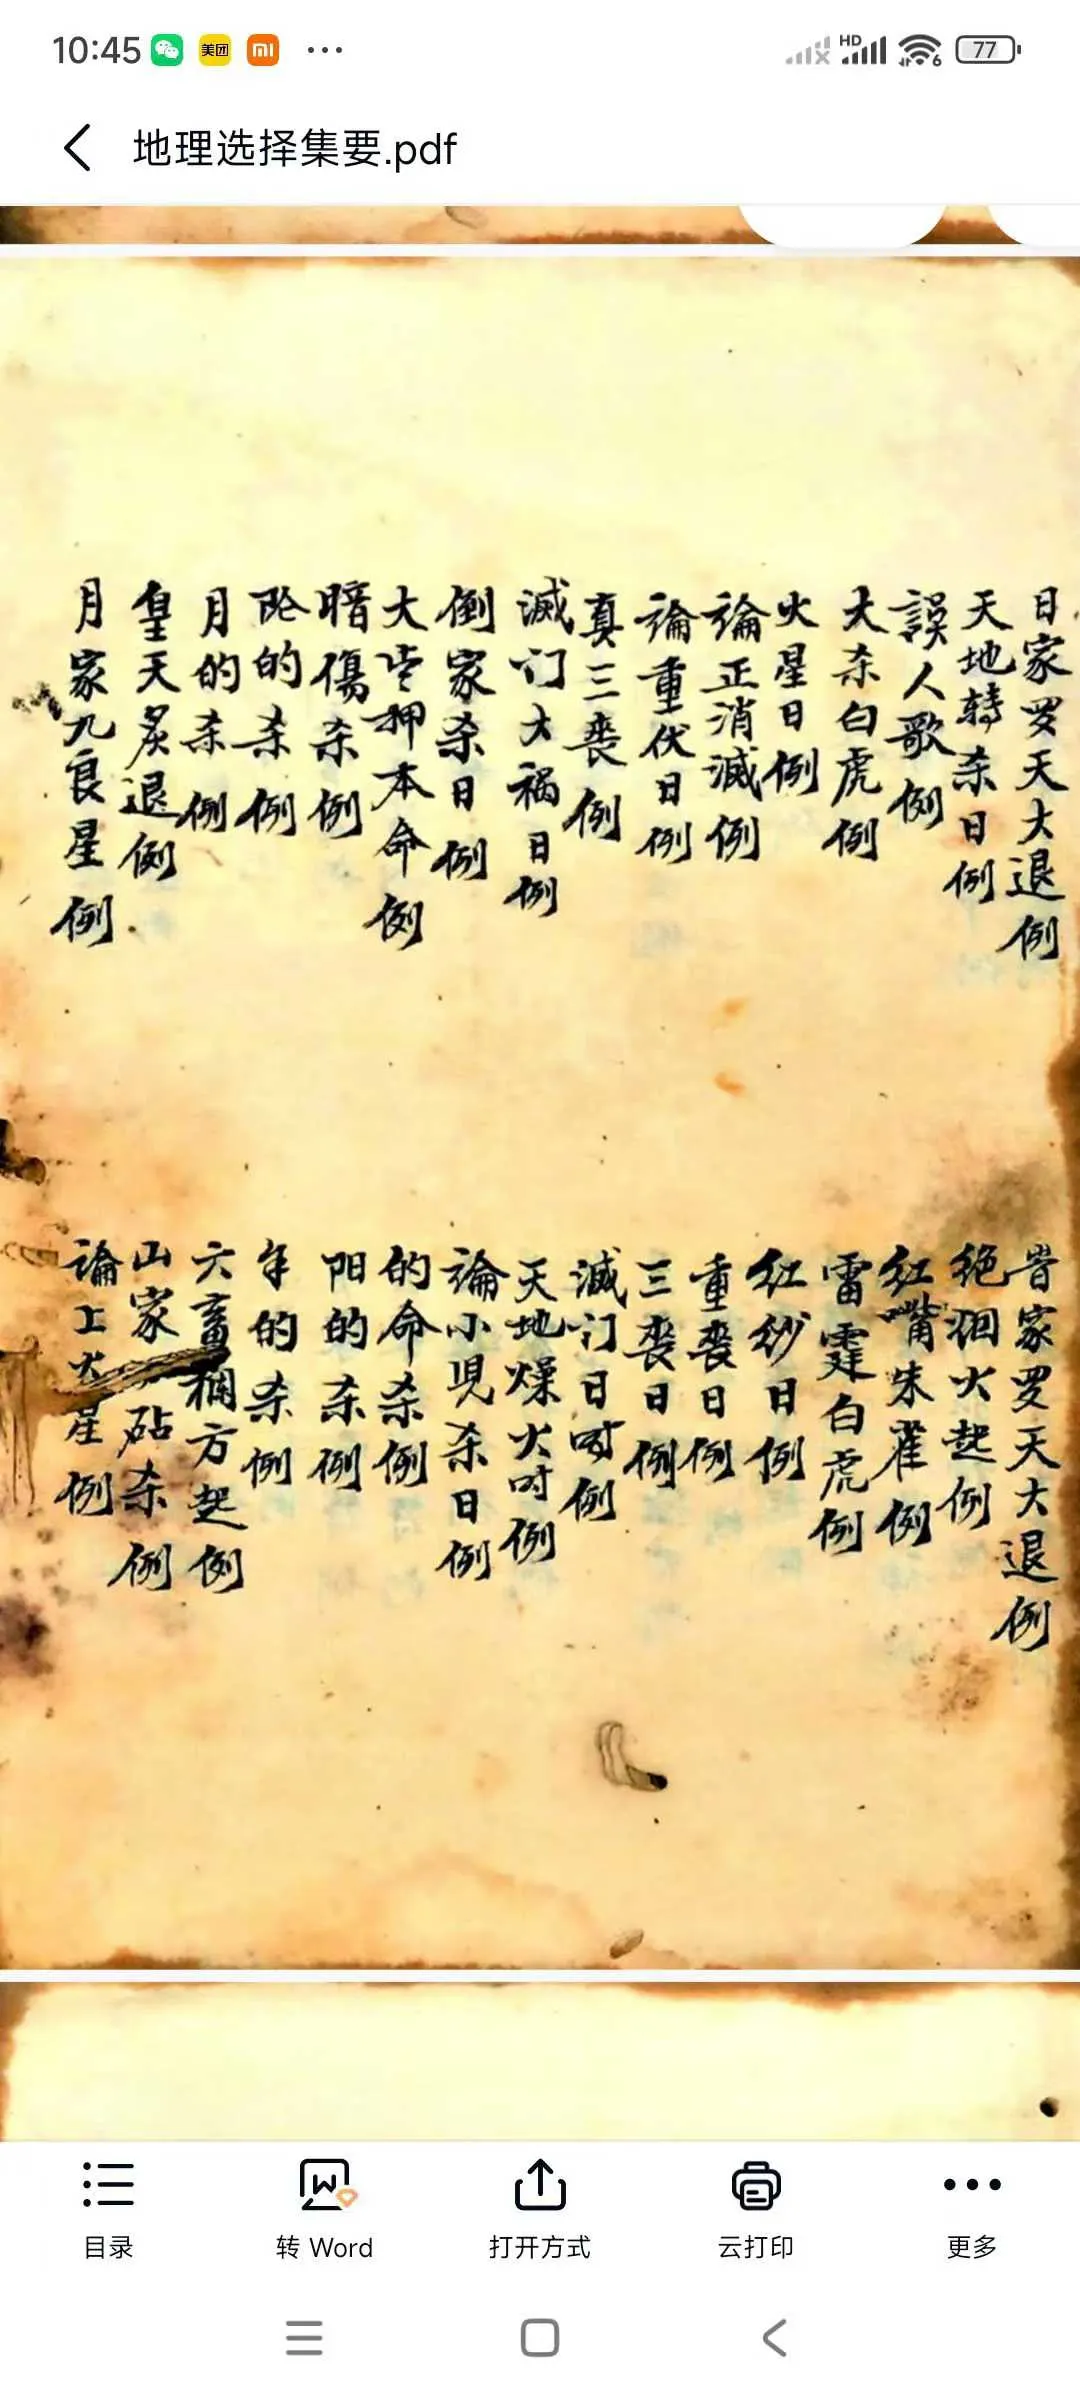 10:45
美团
HD
6
77
地理选择集要.pdf
日家罗天大退例
天地转杀日例
誤人歌例
大杀白虎例
火星日例
論正消滅例
論重伏日例
真三喪例
滅门大祸日例
倒家杀日例
大岁押本命例
暗傷杀例
阴的杀例
月的杀例
皇天炙退例
月家九良星例
昔家罗天大退例
绝洄火起例
红嘴朱雀例
雷霆白虎例
红纱日例
重喪日例
三喪日例
滅门日时例
天地燥火时例
論小児杀日例
的命杀例
阳的杀例
年的杀例
六畜栏方起例
山家砧杀例
論上火星例
目录
转 Word
打开方式
云打印
更多